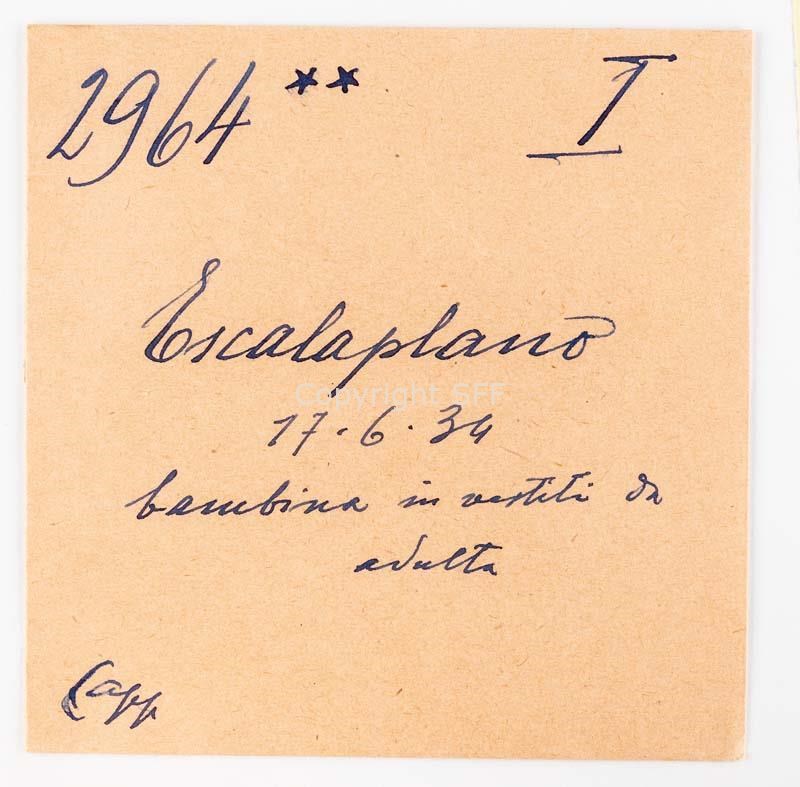 2964 ** I
Escalaplano
Copyright SFF
17.6.34
bambina in vestiti da
adulta
Capp